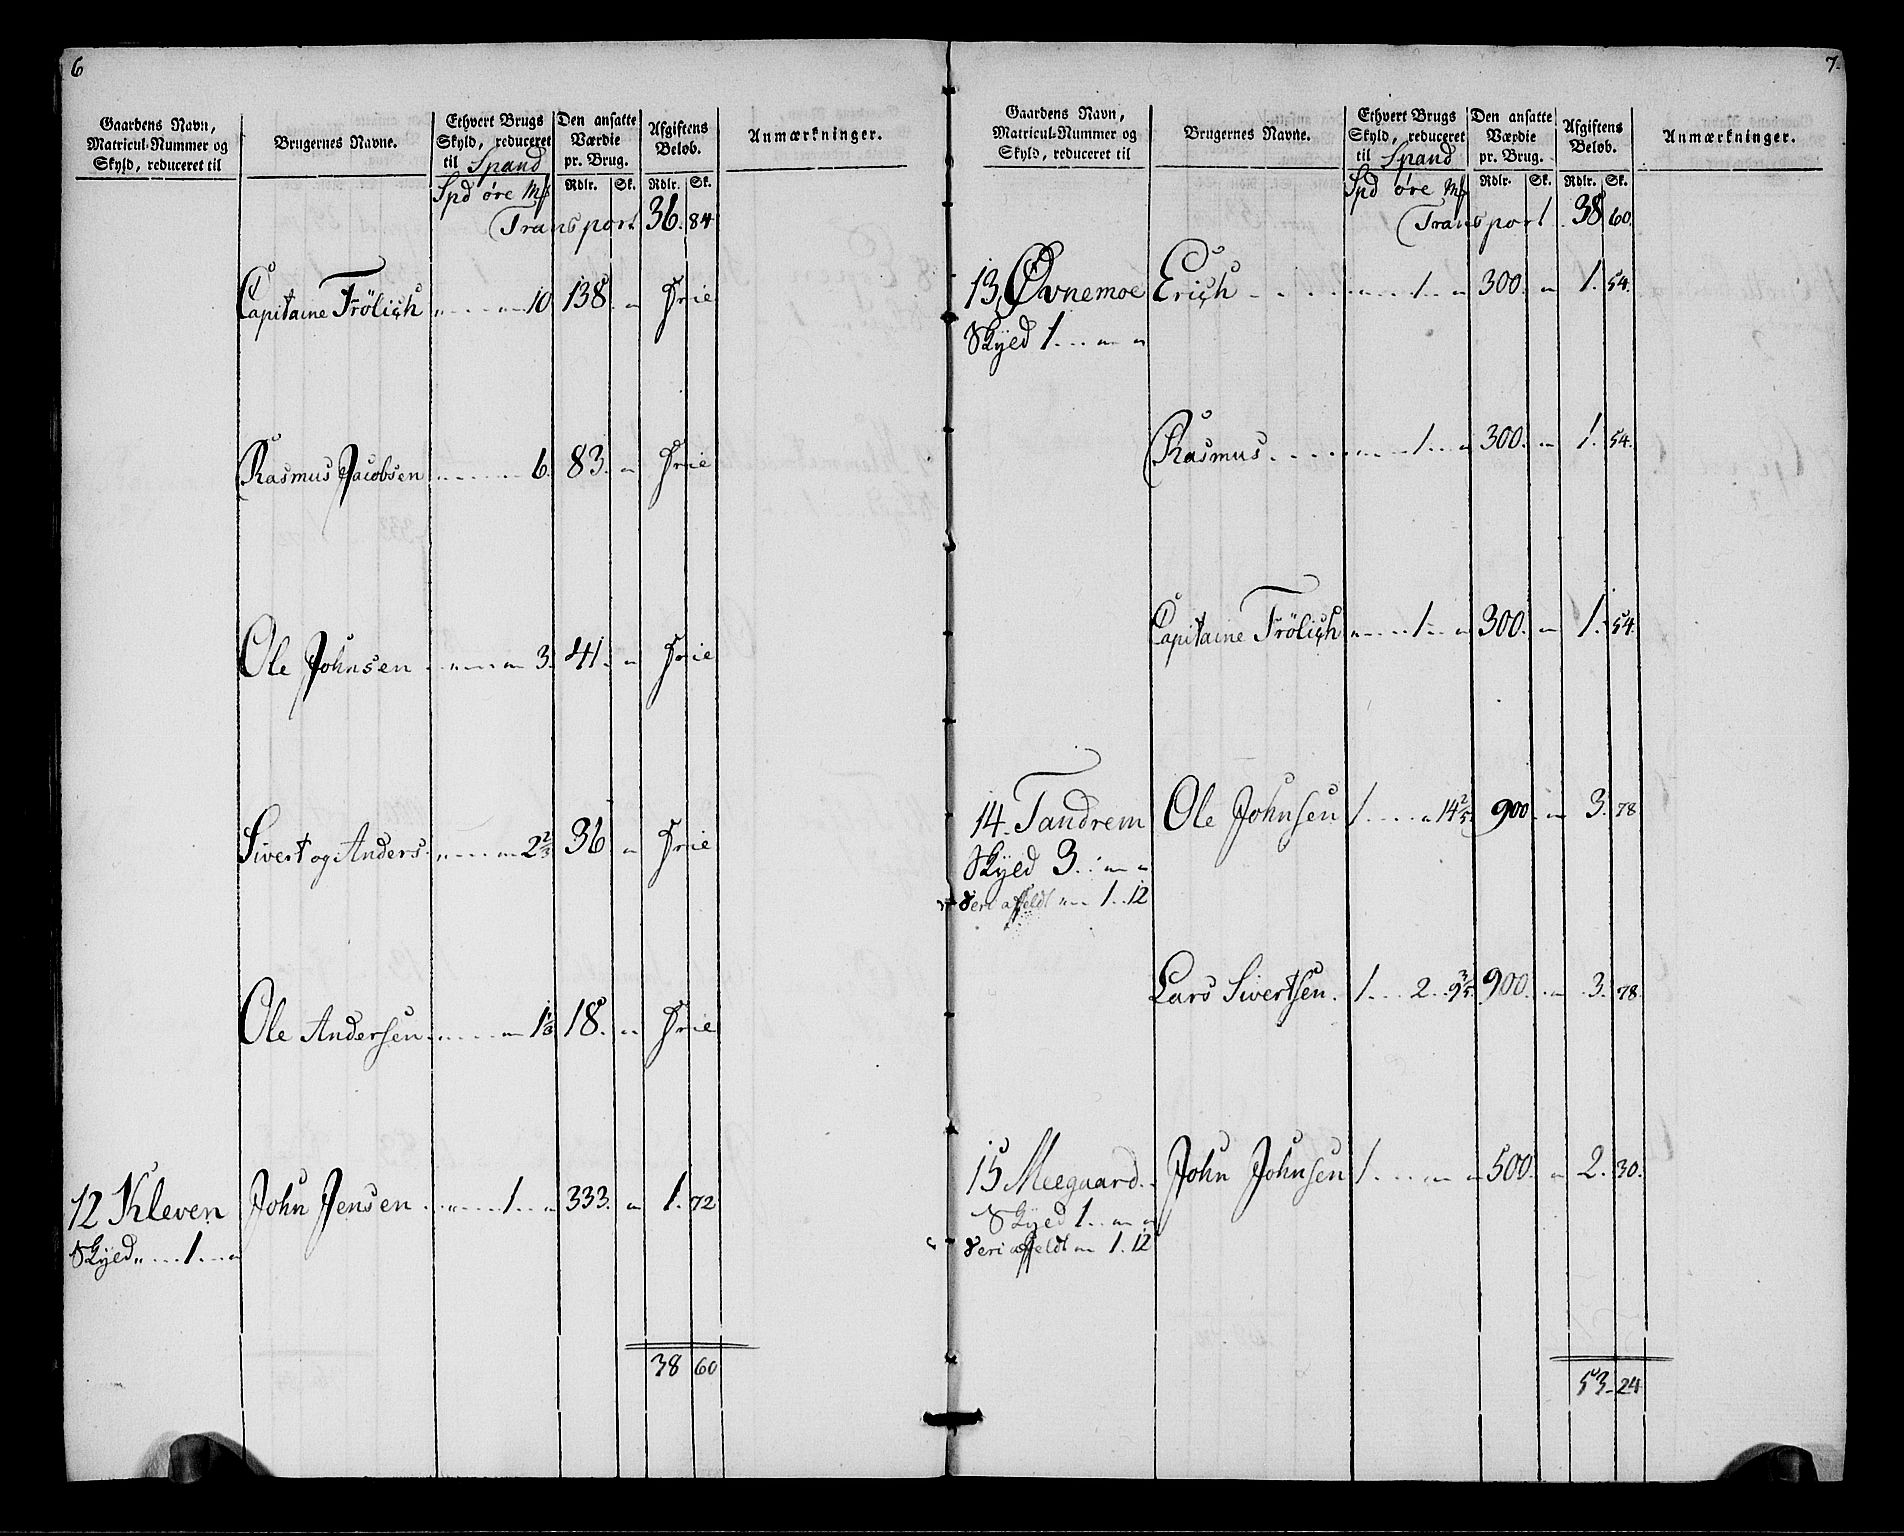 6
Gaardens Navn,
Matricul-Nummer og
Skyld, reduceret til
Brugernes Navne.
Ethvert Brugs
Skyld, reduceret
til Spand
Den ansatte
Værdie
pr. Brug.
Afgiftens
Beløb.
Anmærkninger.
Spd øre Mk Rdlr. Sk. Rdlr. Sk.
Transport 36. 84
Capitaine Frölich 10 138 Frie
Rasmus Jacobsen 6. 83. Frie
Ole Johnsen 3. 41. Frie
Sivert og Anders 2 2/3 36 Frie
Ole Andersen 1 1/3 18. Frie
12 Kleven John Jensen 1 333. 1. 72
Skyld 1
38 60
7.
Gaardens Navn,
Matricul-Nummer og
Skyld, reduceret til
Brugernes Navne.
Ethvert Brugs
Skyld, reduceret
til Spand
Den ansatte
Værdie
pr. Brug.
Afgiftens
Beløb.
Anmærkninger.
Spd øre Mk Rdlr. Sk. Rdlr. Sk.
Transport 38 60.
13, Øvnemoe Erich 1 300. 1. 54.
Skyld 1
Rasmus 1 300. 1. 54.
Capitaine Frölich 1 300. 1. 54.
14. Tandrem Ole Johnsen 1 14 2/5 900 3. 78
Skyld 3.
1. 12
Lars Sivertsen. 1 2 9 3/5 900. 3. 78.
15 Meegaard John Johnsen 1 500. 2. 30.
Skyld 1
1. 12
53. 24